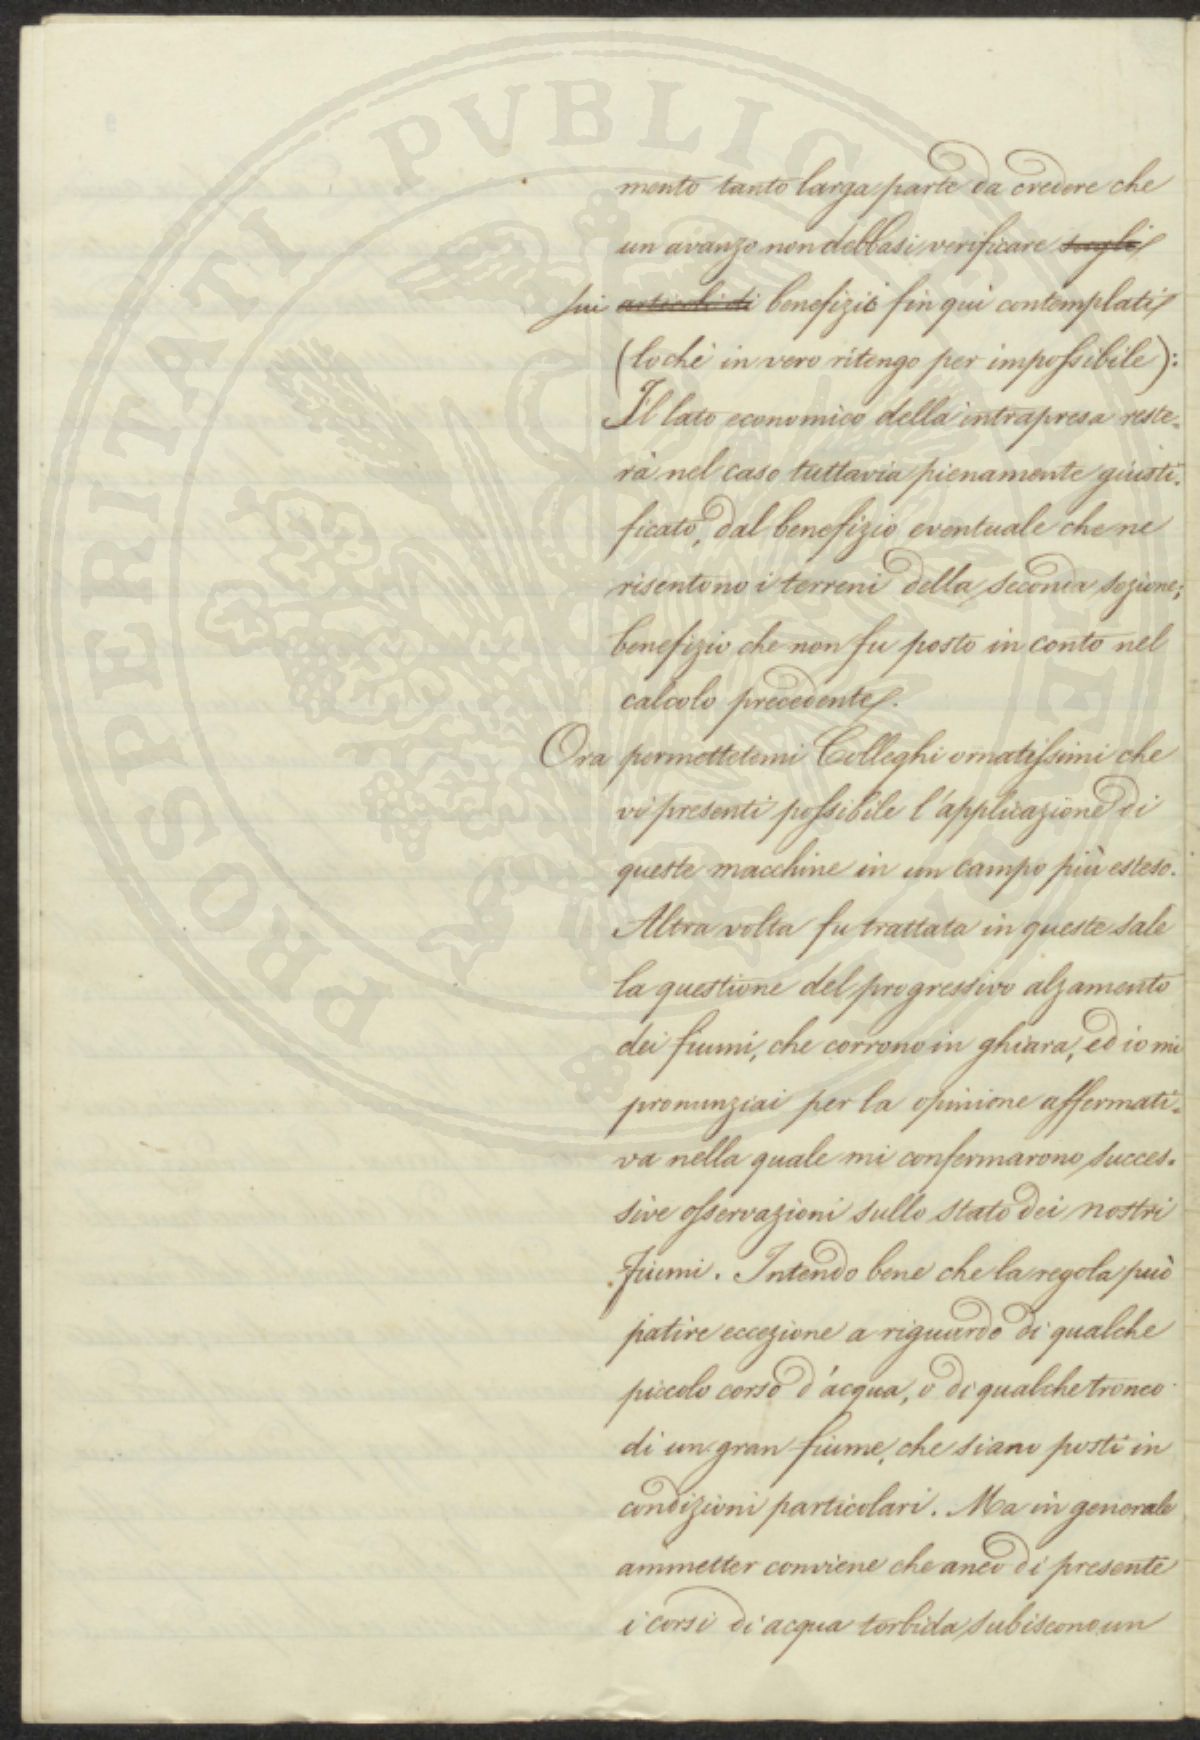 mento tanto larga parte da credere che
un avanzo non debbasi verificare sugli
sui articoli di benefizii fin qui contemplati
(lochè in vero ritengo per impossibile):
Il lato economico della intrapresa reste-
rà nel caso tuttavia pienamente giusti-
ficato, dal benefizio eventuale che ne
risentono i terreni della seconda sezione;
benefizio che non fu posto in conto nel
calcolo precedente.
Ora permettetemi Colleghi ornatissimi che
vi presenti possibile l'applicazione di
queste macchine in un campo più esteso.
Altra volta fu trattata in queste sale
la questione del progressivo alzamento
dei fiumi, che corrono in ghiara, ed io mi
pronunziai per la opinione affermati-
va nella quale mi confermarono succes-
sive osservazioni sullo stato dei nostri
fiumi. Intendo bene che la regola può
patire eccezione a riguardo di qualche
piccolo corso d'acqua, o di qualche tronco
di un gran fiume, che siano posti in
condizioni particolari. Ma in generale
ammetter conviene che anco di presente
i corsi di acqua torbida subiscono un
PROSPERITATI PUBLICAE